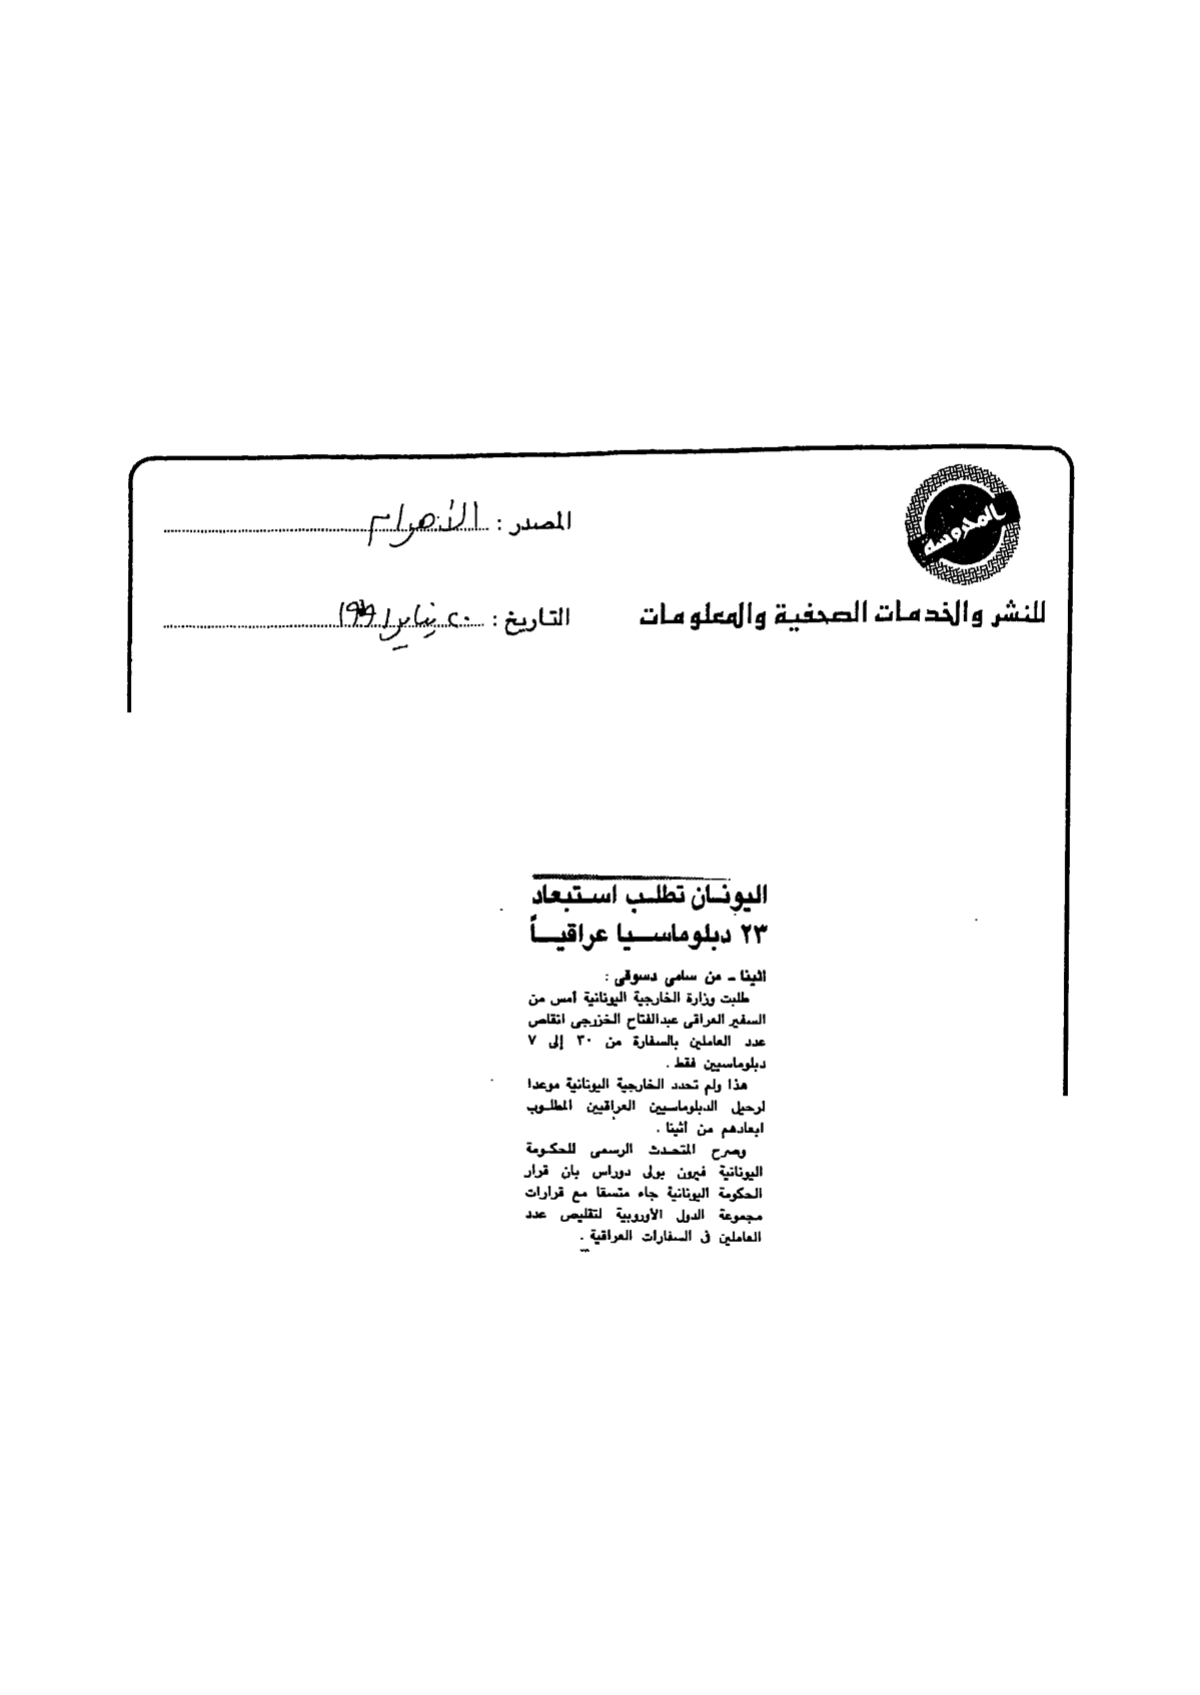 المحروسة
للنشر والخدمات الصحفية والمعلومات
المصدر : الأهرام
التاريخ : ٢٠ يناير ١٩٩١
اليونان تطلب استبعاد
٢٣ دبلوماسيا عراقياً
اثينا - من سامى دسوقى :
طلبت وزارة الخارجية اليونانية أمس من
السفير العراقى عبدالفتاح الخزرجى انقاص
عدد العاملين بالسفارة من ٣٠ إلى ٧
دبلوماسيين فقط .
هذا ولم تحدد الخارجية اليونانية موعدا
لرحيل الدبلوماسيين العراقيين المطلوب
ابعادهم من أثينا .
وصرح المتحدث الرسمى للحكومة
اليونانية فيرون بولى دوراس بان قرار
الحكومة اليونانية جاء متسقا مع قرارات
مجموعة الدول الأوروبية لتقليص عدد
العاملين فى السفارات العراقية .